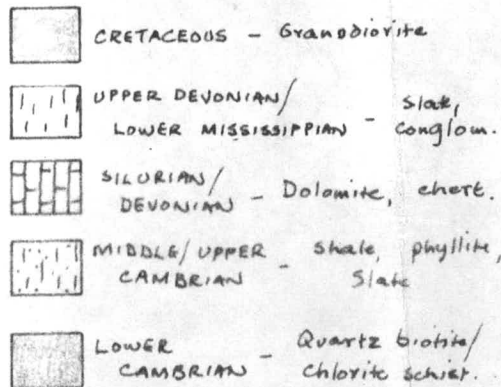 CRETACEOUS - Granodiorite
UPPER DEVONIAN/
LOWER MISSISSIPPIAN - Slate, conglom.
SILURIAN/
DEVONIAN - Dolomite, chert.
MIDDLE/UPPER
CAMBRIAN - Shale, phyllite, Slate
LOWER
CAMBRIAN - Quartz biotite/ Chlorite schist.